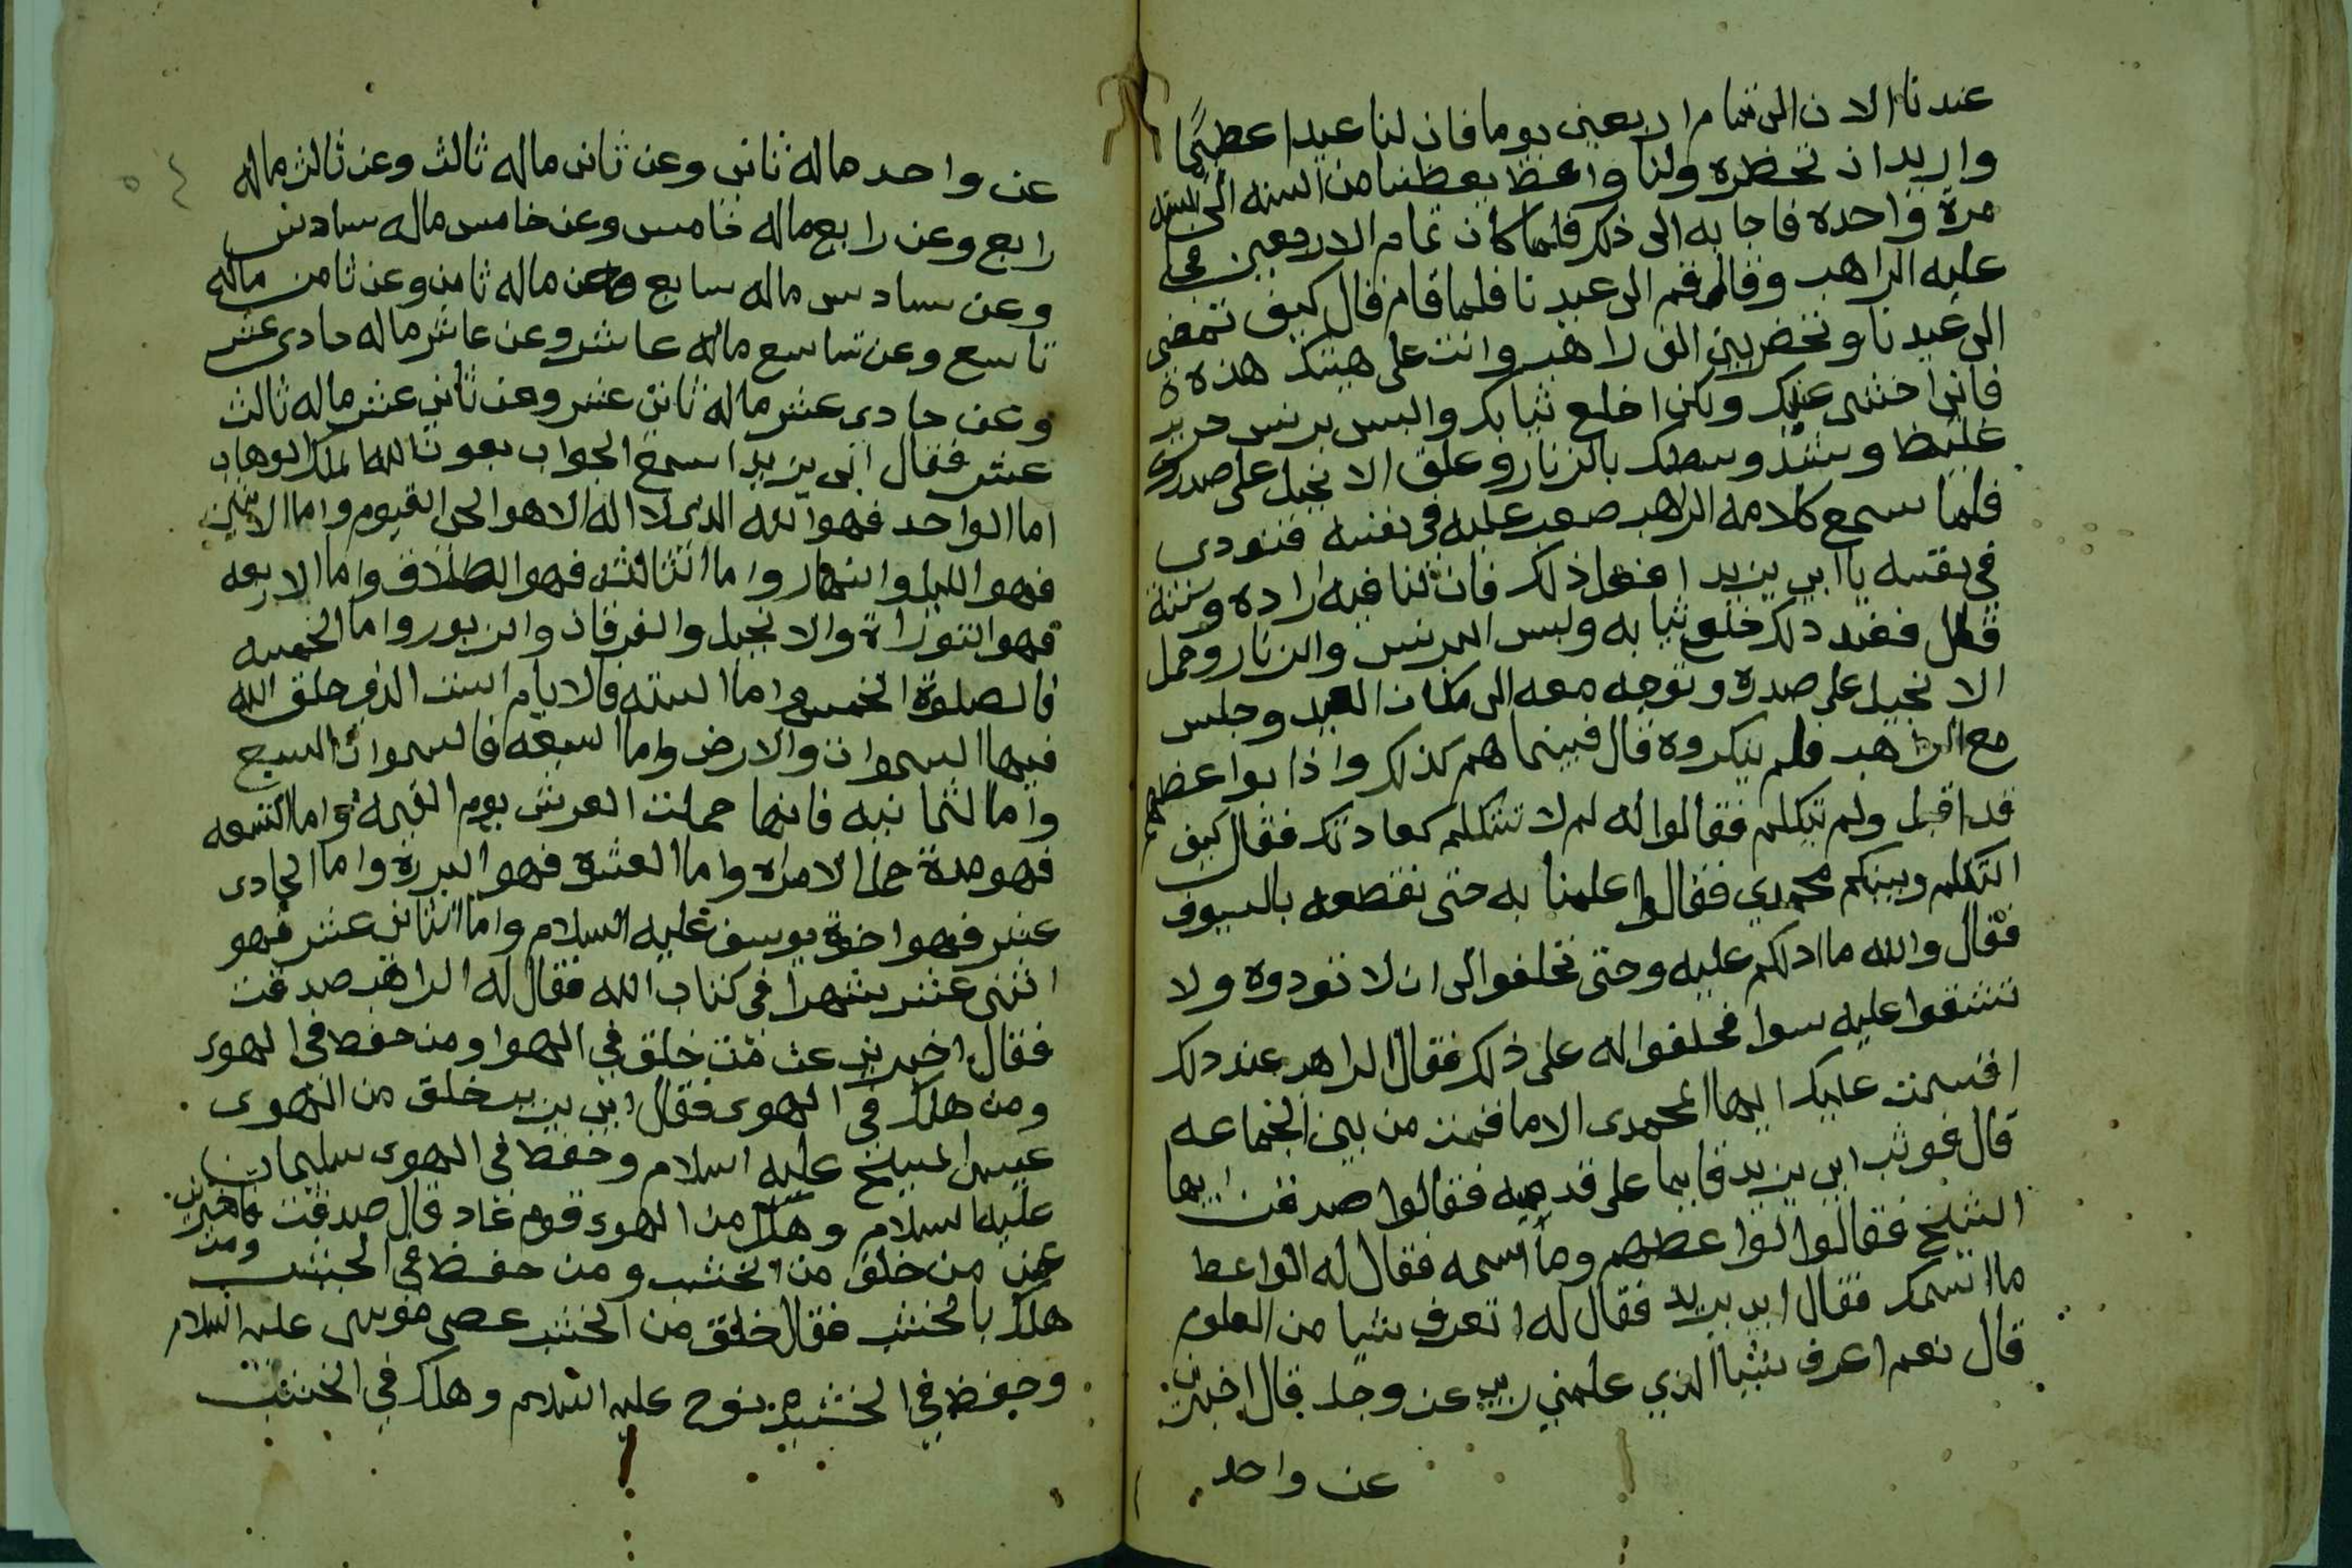 عندنا الان الى تمام اربعين يوما فان لنا عيدا عظيما
واريد ان تحظره ولنا واعظ يعظنا من السنه الى السنه
مرة واحده فاجابه الى ذلك فلما كان تمام الاربعين
عليه الراهب وقال قم الى عيدنا فلما قام قال كيف تمضى
الى عيدنا وتحضر بين الف راهب وانت على هيئتك هذه
فانى اخشى عليك ولكن اخلع ثيابك والبس برنس
غليظا وشد وسطك بالزنار وعلق الانجيل على صدرك
فلما سمع كلامه الراهب صعب عليه فى نفسه فنودى
في نفسه يا ابى يزيد افعل ذلك فان لنا فيه اراده
قال فعند ذلك خلع ثيابه ولبس البرنس والزنار وحمل
الانجيل على صدره وتوجه معه الى مكان العيد وجلس
مع الراهب فلم ينكروه قال فبينما هم كذلك واذا بواعظهم
قد اقبل ولم يتكلم فقالوا له لم لا تتكلم كعادتك فقال كيف
اتكلم وبينكم محمدي فقالوا اعلمنا به حتى نقطعه بالسيوف
فقال والله ما ادلكم عليه وحتى تحلفوا الى ان لا تودوه ولا
تشقوا عليه سوا فحلفوا له على ذلك فقال الراهب عند ذلك
اقسمت عليك ايها المحمدى الا ما قمت من بين الجماعه
قال فوثب ابى يزيد قايما على قدميه فقالوا صدقت ايها
الشيخ فقالوا لواعظهم وما اسمه فقال له الواعظ
ما اسمك فقال ابى يزيد فقال له اتعرف شيا من العلوم
قال نعم اعرف شيا الذي علمني ربي عز وجل قال اخبرنى
عن واحد
عن واحد ماله ثانى وعن ثانى ماله ثالث وعن ثالث ماله
رابع وعن رابع ماله خامس وعن خامس ماله سادس
وعن سادس ماله سابع وعن ماله ثامن وعن ثامن ماله
تاسع وعن تاسع ماله عاشر وعن عاشر ماله حادى عشر
وعن حادى عشر ماله ثانى عشر وعن ثانى عشر ماله ثالث
عشر فقال ابى يزيد اسمع الجواب بعون الله الملك الوهاب
اما الواحد فهو الله الذى لا اله الا هو الحى القيوم واما الاثنين
فهو الليل والنهار واما الثالث فهو الطلاق واما الاربعه
فهو التوراة والانجيل والفرقان والزبور واما الخمسه
فالصلوة الخمس واما السته فالايام الست الذى خلق الله
فيها السموات والارض واما السبعه فالسموات السبع
واما لثمانيه فانها حملت العرش يوم القيمه واما التسعه
فهو مدة حمل الامراه واما العشره فهو البرره واما الحادى
عشر فهو اخوة يوسف عليه السلام واما الثانى عشر فهو
اثنى عشر شهرا فى كتاب الله فقال له الراهب صدقت
فقال اخبرنى عن من خلق في الهوا ومن حفظ فى الهوى
ومن هلك فى الهوى فقال ابى يزيد خلق من الهوى
عيسى المسيح عليه السلام وحفظ في الهوى سليمان
عليه السلام وهلك من الهوى قوم عاد قال صدقت فاخبرنى
عن من خلق من الخشب ومن حفظ في الخشب ومن
هلك بالخشب فقال خلق من الخشب عصى موسى عليه السلام
وحفظ في الخشب نوح عليه السلام وهلك في الخشب